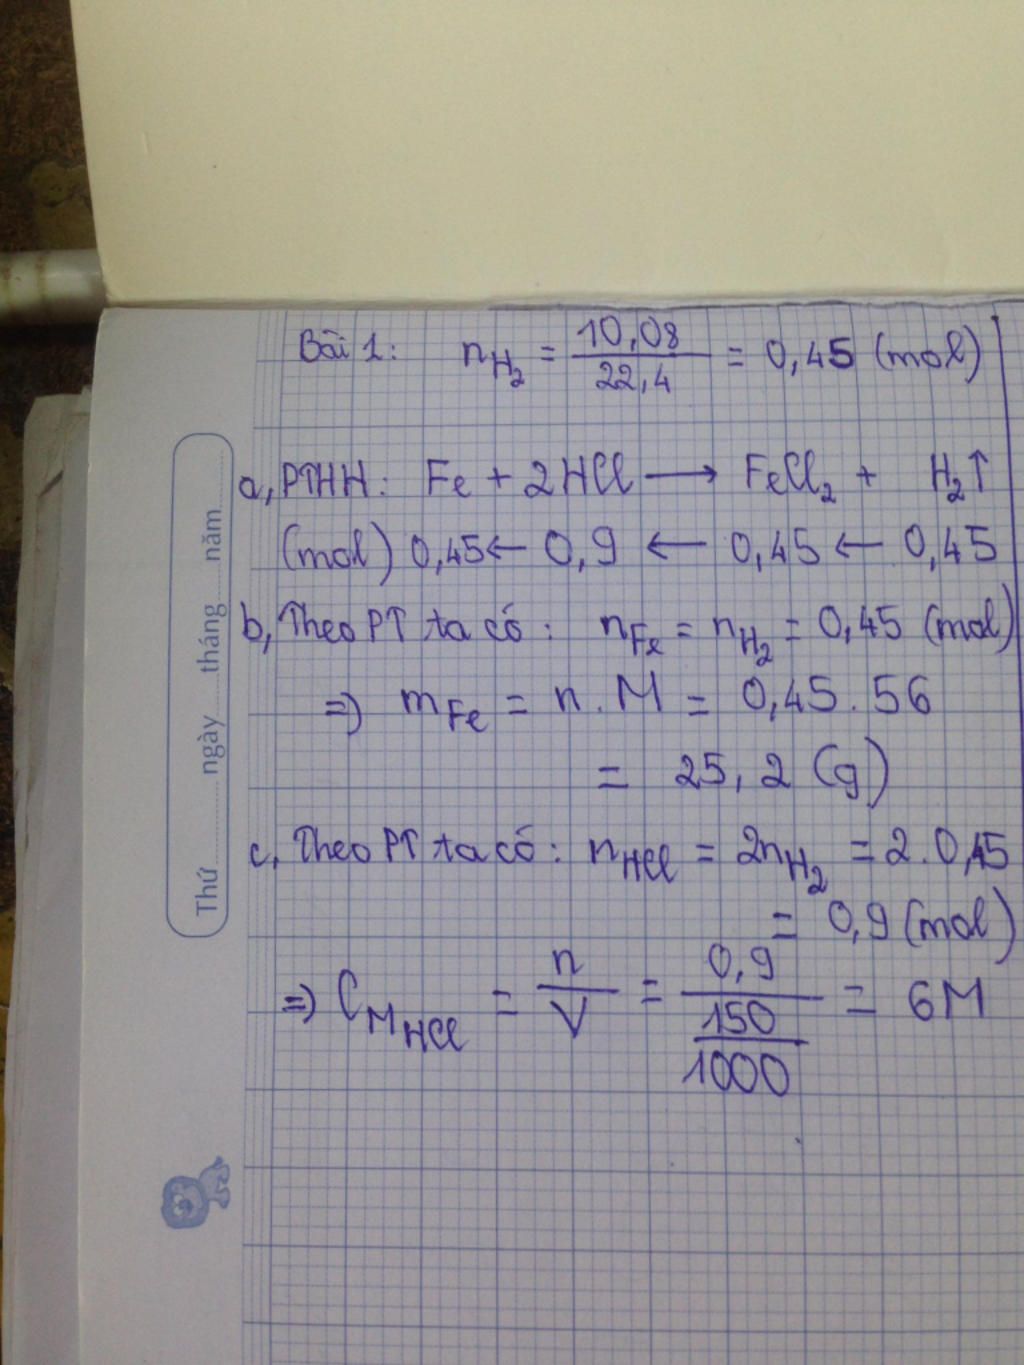 Bài 1: nH₂ = 10,08/22,4 = 0,45 (mol)
a, PTHH: Fe + 2HCl ⟶ FeCl₂ + H₂↑
(mol) 0,45 ← 0,9 ← 0,45 ← 0,45
b, Theo PT ta có: nFe = nH₂ = 0,45 (mol)
=) mFe = n . M = 0,45 . 56
= 25,2 (g)
c, Theo PT ta có: nHCl = 2nH₂ = 2 . 0,45
= 0,9 (mol)
=) CMHCl = n/V = 0,9/(150/1000) = 6M
Thứ........ ngày........ tháng........ năm........